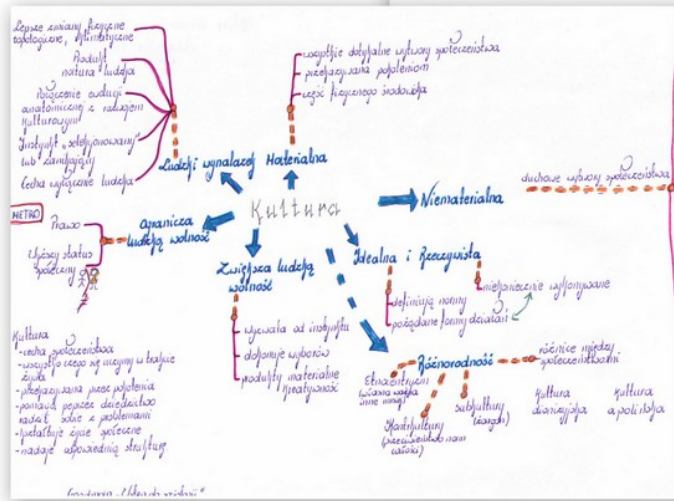 Lepsze zmiany fizyczne
topologiczne, klimatyczne
Produkt
natura ludzka
Połączenie ewolucji
anatomicznej z rozwojem
kulturowym
Instynkt „selekjonowany"
lub zanikający
Cecha wyłącznie ludzka
Ludzki wynalazek
wszystkie dotykalne wytwory społeczeństwa
przekazywana pokoleniom
część fizycznego środowiska
Materialna
Niematerialna
duchowe wytwory społeczeństwa
Kultura
RETRO
Prawo
Wyższy status
społeczny
Ogranicza
ludzką wolność
Zwiększa ludzką
wolność
wyzwala od instynktu
dokonuje wyborów
produkty materialne
kreatywność
Idealna i Rzeczywista
definiują normy
pożądane formy działań
niekoniecznie wykonywane
Różnorodność
różnice między
społeczeństwami
Etnocentryzm
inne
Kontrkultury
subkultury
(żargon)
Kultura
dionizyjska
Kultura
apolińska
Kultura
-cecha społeczeństwa
-wszystko czego się uczymy w trakcie
życia
-przekazywana przez pokolenia
-pomaga poprzez dziedzictwo
radzić sobie z problemami
-kształtuje życie społeczne
-nadaje odpowiednią strukturę